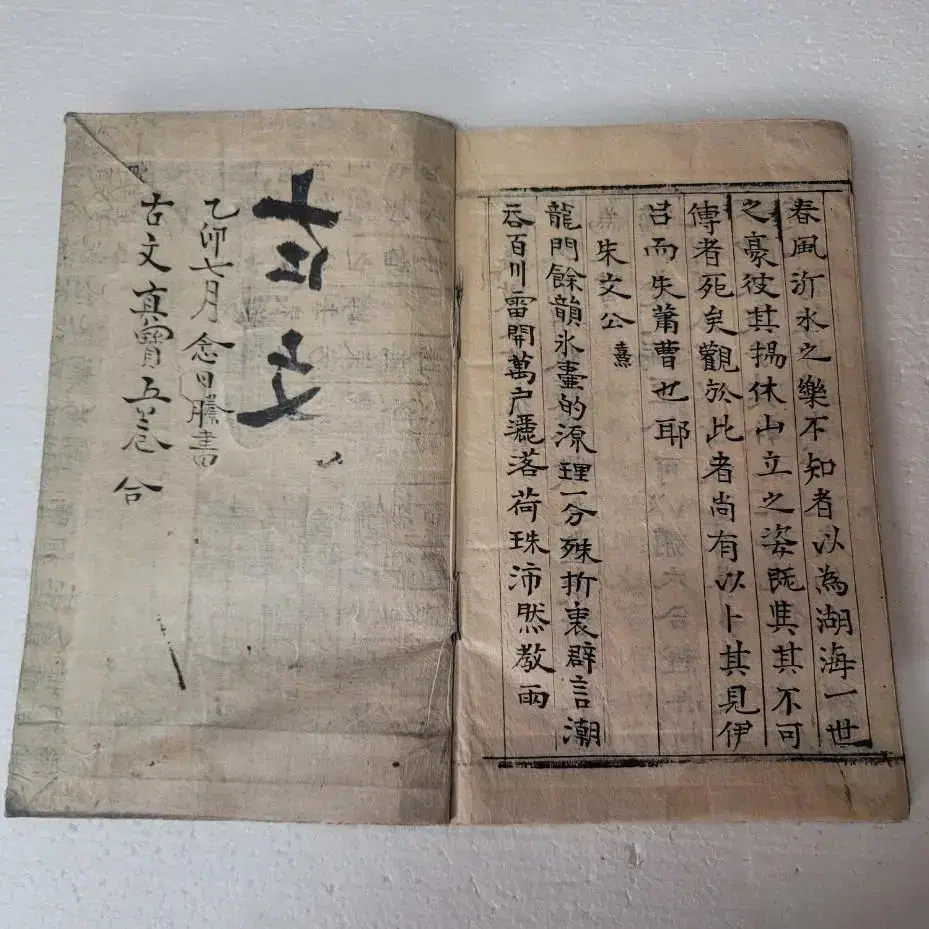 春風沂水之樂不知者以為湖海一世
之豪彼其揚休山立之姿既與其不可
傳者死矣觀於此者尚有以卜其見伊
呂而失蕭曹也耶
朱文公 熹
龍門餘韻氷壺的源理一分殊折衷群言潮
呑百川雷開萬戶灑落荷珠沛然教雨
古文
乙卯七月念日謄書
古文真寶五卷 合